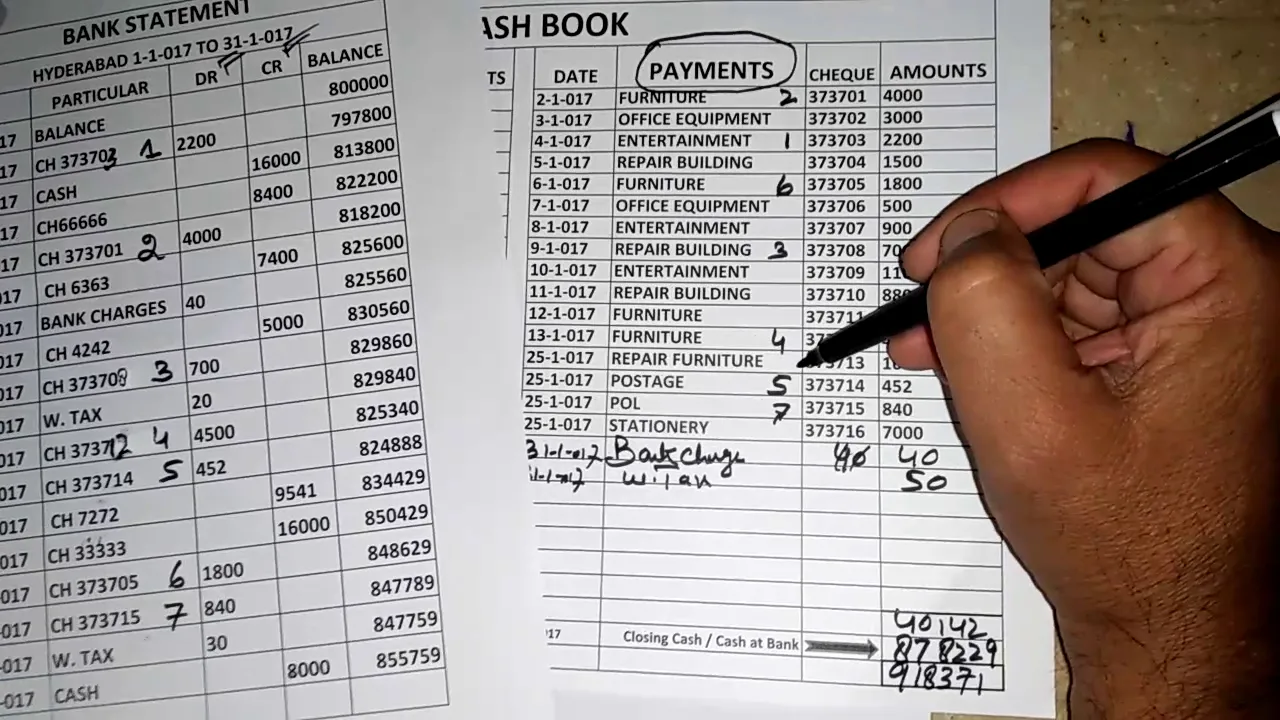 BANK STATEMENT
HYDERABAD 1-1-017 TO 31-1-017
PARTICULAR DR CR BALANCE
17 BALANCE 800000
017 CH 373703 1 2200 797800
017 CASH 16000 813800
017 CH66666 8400 822200
017 CH 373701 2 4000 818200
017 CH 6363 7400 825600
017 BANK CHARGES 40 825560
017 CH 4242 5000 830560
017 CH 373708 3 700 829860
017 W. TAX 20 829840
017 CH 373712 4 4500 825340
017 CH 373714 5 452 824888
017 CH 7272 9541 834429
017 CH 33333 16000 850429
017 CH 373705 6 1800 848629
-017 CH 373715 7 840 847789
-017 W. TAX 30 847759
-017 CASH 8000 855759
ASH BOOK
TS DATE PAYMENTS CHEQUE AMOUNTS
2-1-017 FURNITURE 2 373701 4000
3-1-017 OFFICE EQUIPMENT 373702 3000
4-1-017 ENTERTAINMENT 1 373703 2200
5-1-017 REPAIR BUILDING 373704 1500
6-1-017 FURNITURE 6 373705 1800
7-1-017 OFFICE EQUIPMENT 373706 500
8-1-017 ENTERTAINMENT 373707 900
9-1-017 REPAIR BUILDING 3 373708
10-1-017 ENTERTAINMENT 373709
11-1-017 REPAIR BUILDING 373710
12-1-017 FURNITURE 37371
13-1-017 FURNITURE 4
25-1-017 REPAIR FURNITURE 3713
25-1-017 POSTAGE 5 373714 452
25-1-017 POL 7 373715 840
25-1-017 STATIONERY 373716 7000
31-1-017 Bank charge 40 40
W.Tax 50
40142
17 Closing Cash / Cash at Bank 878229
918371